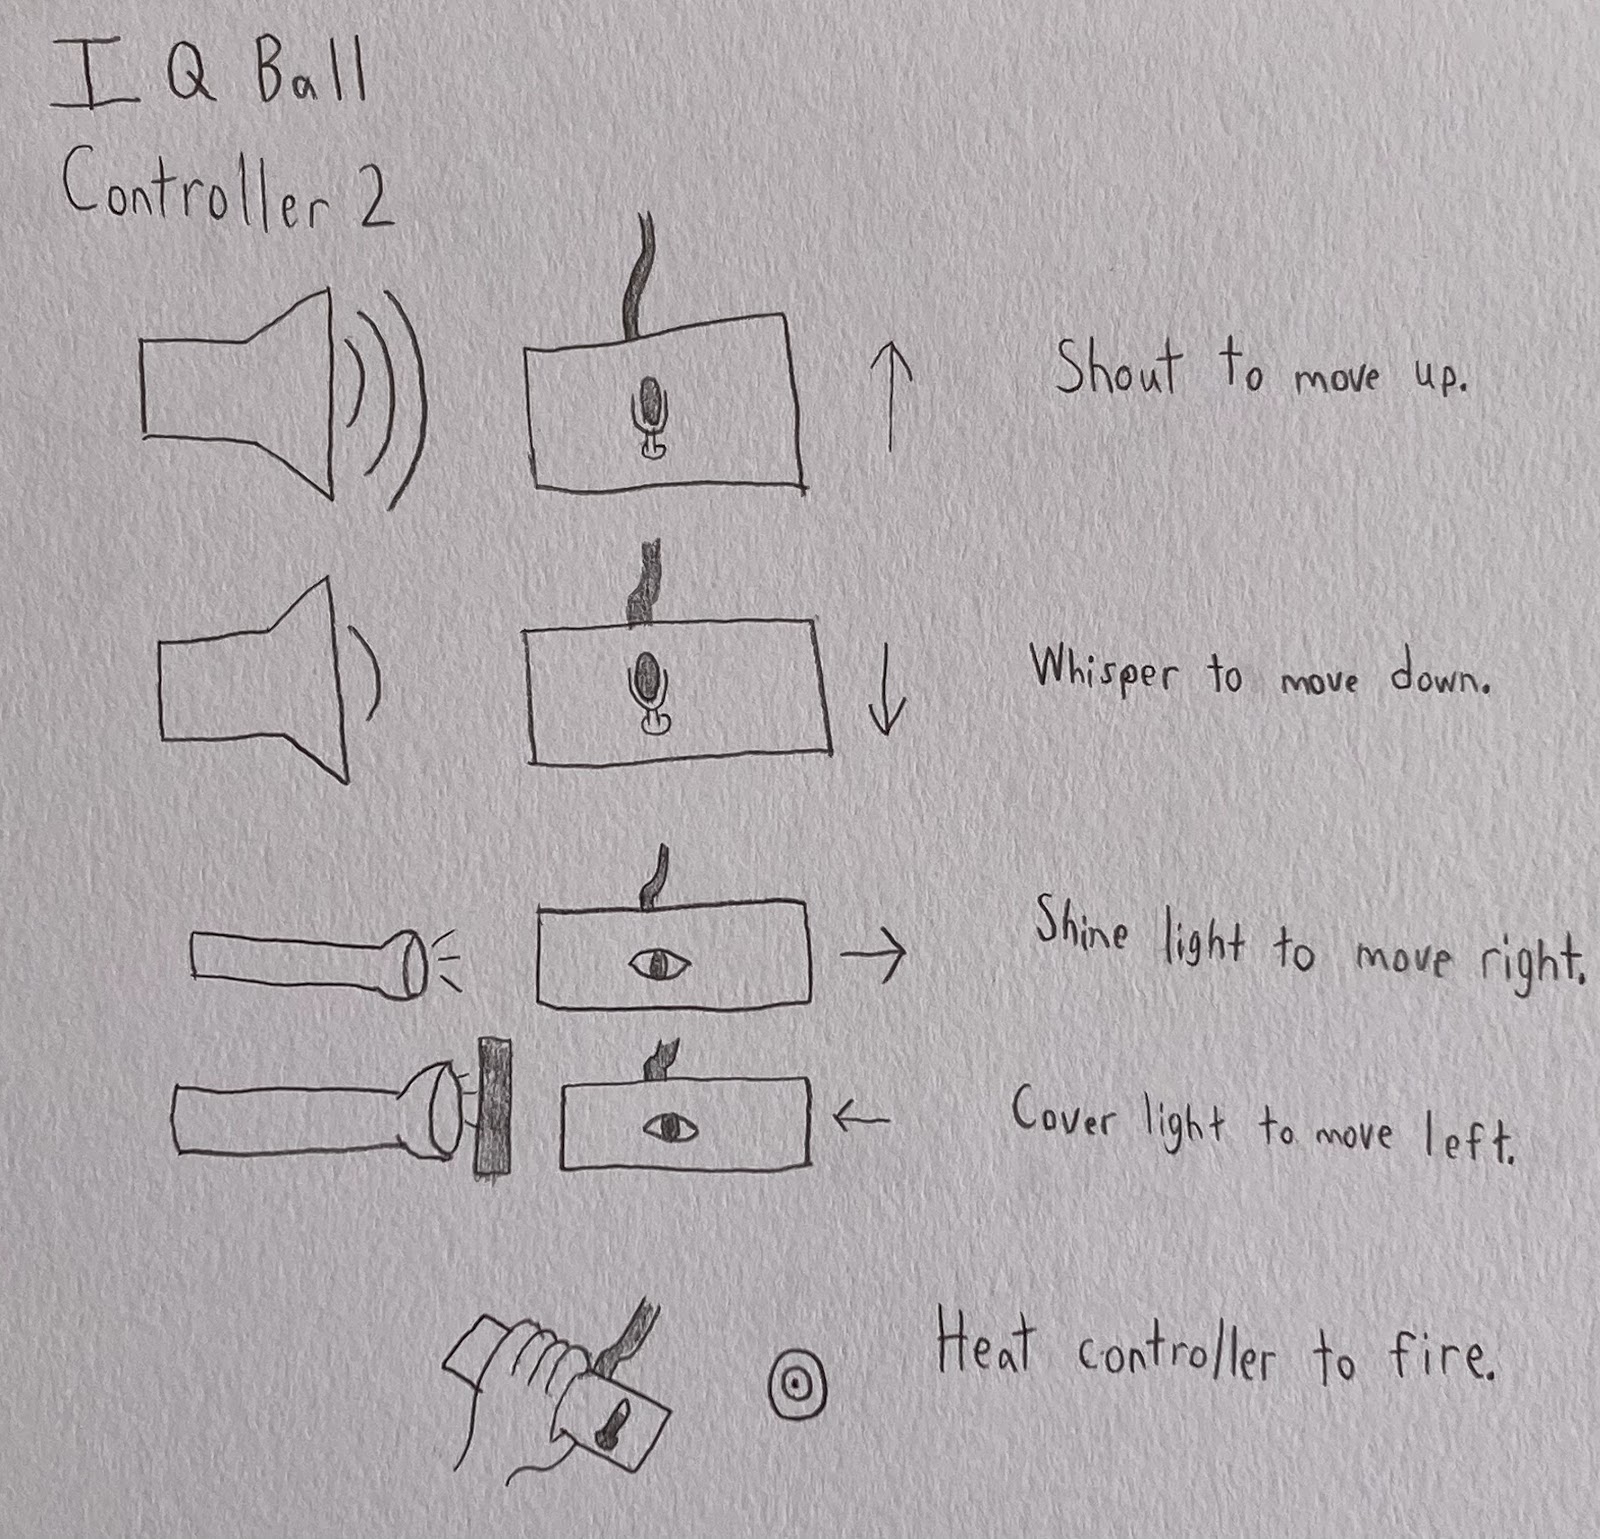 I Q Ball
Controller 2
Shout to move up.
Whisper to move down.
Shine light to move right.
Cover light to move left.
Heat controller to fire.